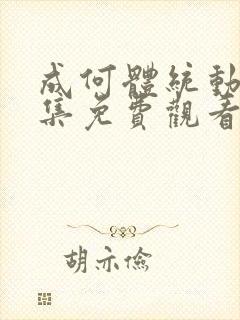 成何體統動
集免費觀看
胡亦儉